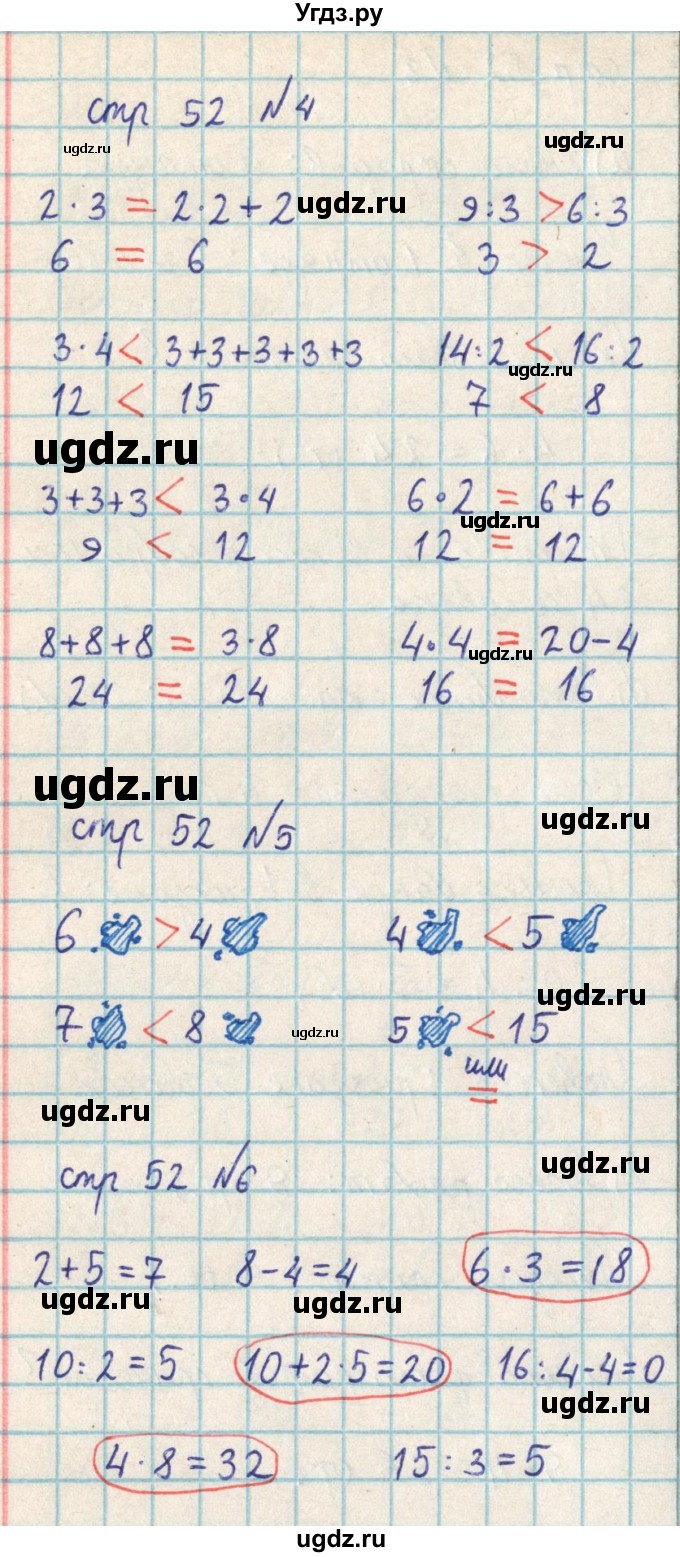 Угдз.ру
стр 52 №4
ugdz.ru ugdz.ru
2·3 = 2·2+2 ugdz.ru 9:3 > 6:3
6 = 6 3 > 2
3·4 < 3+3+3+3+3 14:2 < 16:2
ugdz.ru
12 < 15 7 < 8
ugdz.ru
3+3+3 < 3·4 6·2 = 6+6
ugdz.ru
9 < 12 12 = 12
8+8+8 = 3·8 4·4 = 20-4
ugdz.ru
24 = 24 16 = 16
ugdz.ru
стр 52 №5 ugdz.ru
6 > 4 4 < 5
ugdz.ru
7 < 8 ugdz.ru 5 < 15
или
=
ugdz.ru
стр 52 №6 ugdz.ru
2+5=7 8-4=4 6·3=18
ugdz.ru ugdz.ru
10:2=5 10+2·5=20 16:4-4=0
ugdz.ru
4·8=32 15:3=5
ugdz.ru